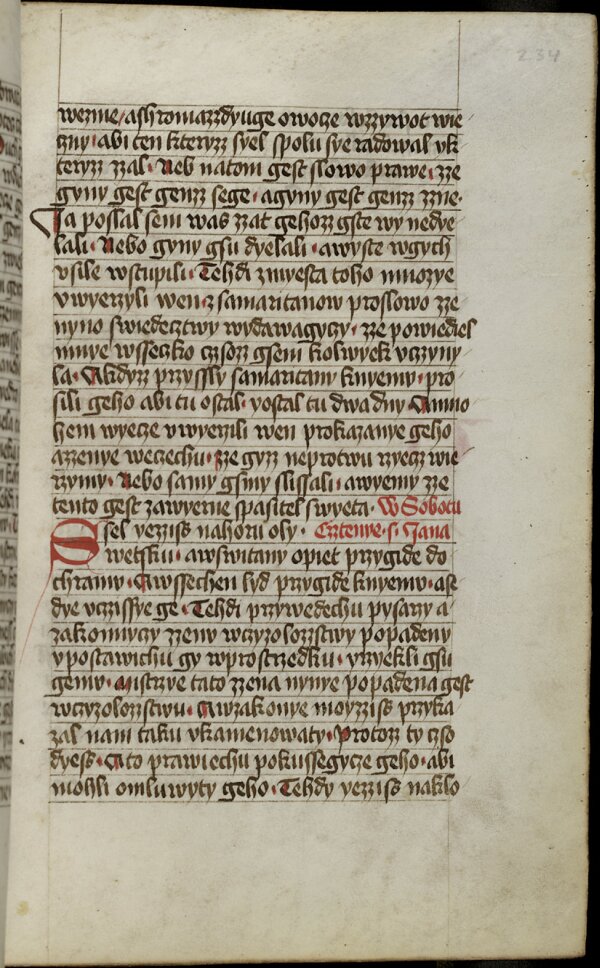 234
wezme · a shromazzdyuge owocze wzzywot wie
czny · abi ten kteryzz syel spolu sye radowal yk
teryzz zzal · Neb natom gest slowo prawe · zze
gyny gest genzz sege · a gyny gest genzz zzne ·
Ja poslal sem was zzat gehozz gste wy nedye
lali · Nebo gyny gsu dyelali · a wyste w gych
vsile wstupili · Tehdi zmyesta toho mnozye
vwyerzyli wen z samaritanow proslowo zze
nyno swiedecztwy wydawagyczy · zze powiediel
mnye wsseczko czsozz gsem kolwyek vczyny
la · A kdyzz przyssly samaritany knyemv · pro
sili geho abi tu ostal · yostal tu dwa dny · A mno
hem wyecze vwyerzili wen prokazanye geho
a zzenye weczechu · zze gyzz neprotwu rzyecz wie
rzymy · Nebo samy gsmy slissali · a wyemy zze
tento gest zawyerne spasitel swyeta · W Sobotu
Ssel yezziss nahoru oly · Cztenye · s · Jana
wetsku · a wswitany opiet przygide do
chramv · A wssechen lyd przygide knyemv · a se
dye vczissye ge · Tehdi przywedechu pysarzy a
zakonnyczy zzenv wczyzolozzstwy popadenv
ypostawichu gy wprostrzedku · yrzyekli gsu
gemv · Mistrzye tato zzena nynye popadena gest
wczyzolozzstwu · A wzakonye moyzziss przyka
zal nam taku vkamenowaty · Protozz ty czso
dyess · A to prawiechu pokussegycze geho · abi
mohli omluwyty geho · Tehdy yezziss naklo